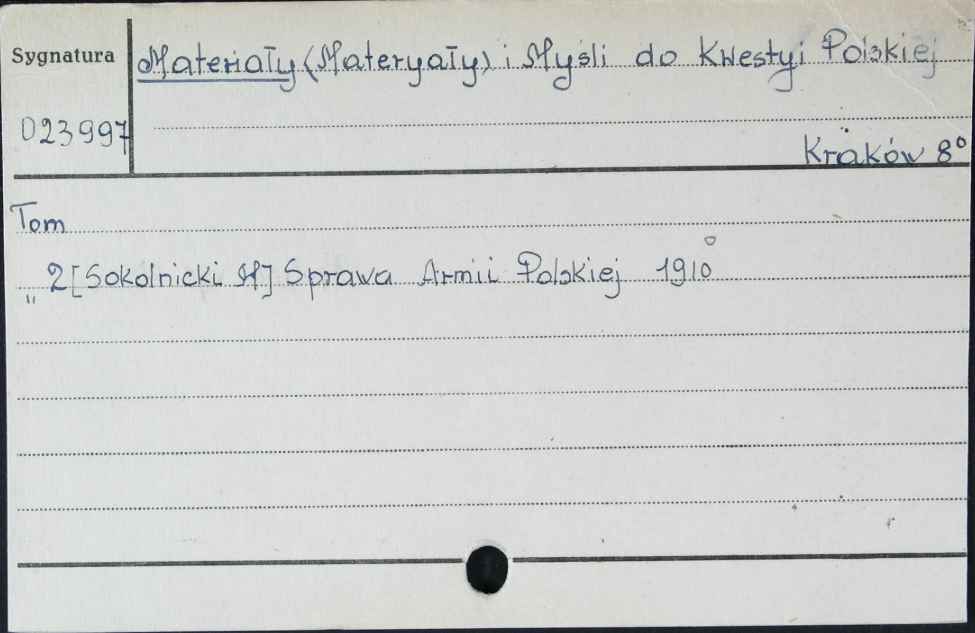 Sygnatura
Materiały (Materyały) i Myśli do Kwestyi Polskiej
023997
Kraków 8°
Tom
„ 2 [Sokolnicki M] Sprawa Armii Polskiej 1910